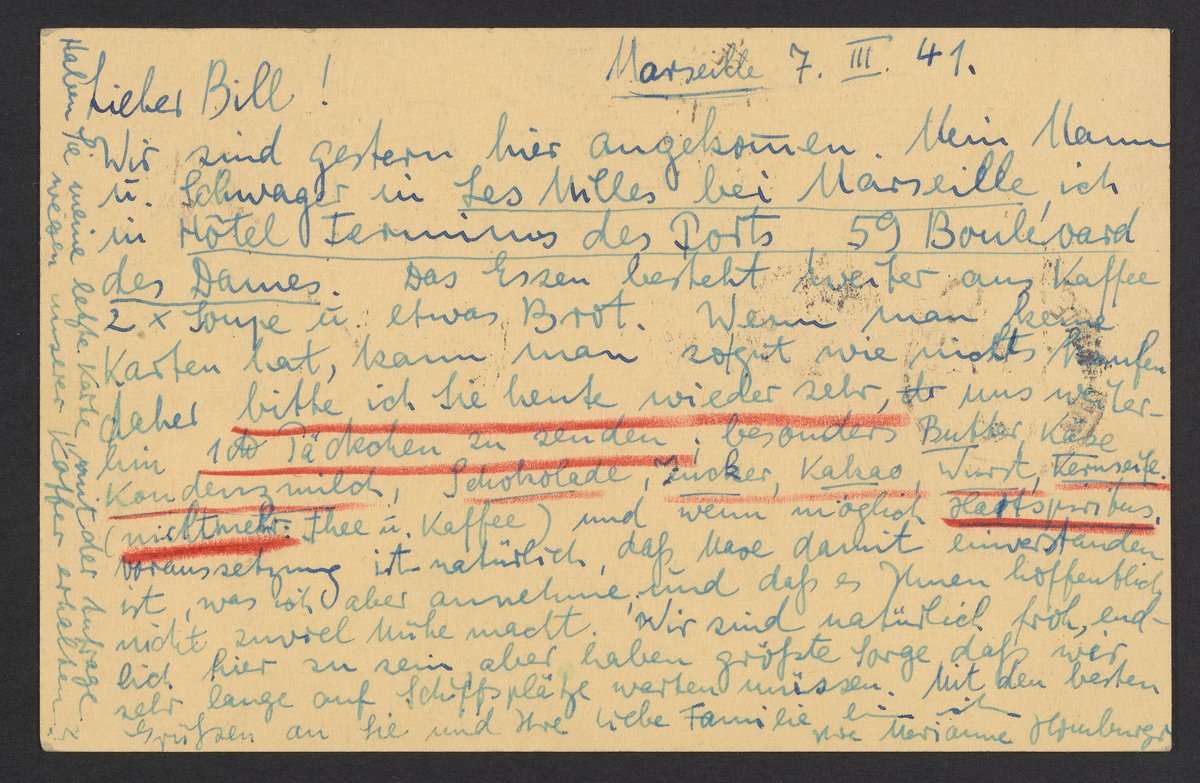 Marseille 7. III. 41.
Lieber Bill!
Wir sind gestern hier angekom̄en. Mein Mann
u. Schwager in Les Milles bei Marseille, ich
in Hôtel Terminus des Ports, 59 Boulevard
des Dames. Das Essen besteht weiter aus Kaffee
2 x Soupe u. etwas Brot. Wenn man keine
Karten hat, kann man sogut wie nichts kaufen
daher bitte ich Sie heute wieder sehr, uns weiter-
hin Päckchen zu senden, besonders Butter, Käse
Kondenzmilch, Schokolade, Zucker, Kakao, Wurst, Kernseife.
(nichtmehr Thee u. Kaffee) und wenn möglich Hartspiritus.
Voraussetzung ist natürlich, daß Maxe damit einverstanden
ist, was ich aber annehme, und daß es Ihnen hoffentlich
nicht zuviel Mühe macht. Wir sind natürlich froh, end-
lich hier zu sein, aber haben größte Sorge daß wir
sehr lange auf Schiffsplätze warten müssen. Mit den besten
Grüßen an Sie und Ihre liebe Familie bin ich
Ihre Marianne Homburger
Haben Sie meine letzte Karte, mit der Anfrage
wegen unserer Koffer erhalten?